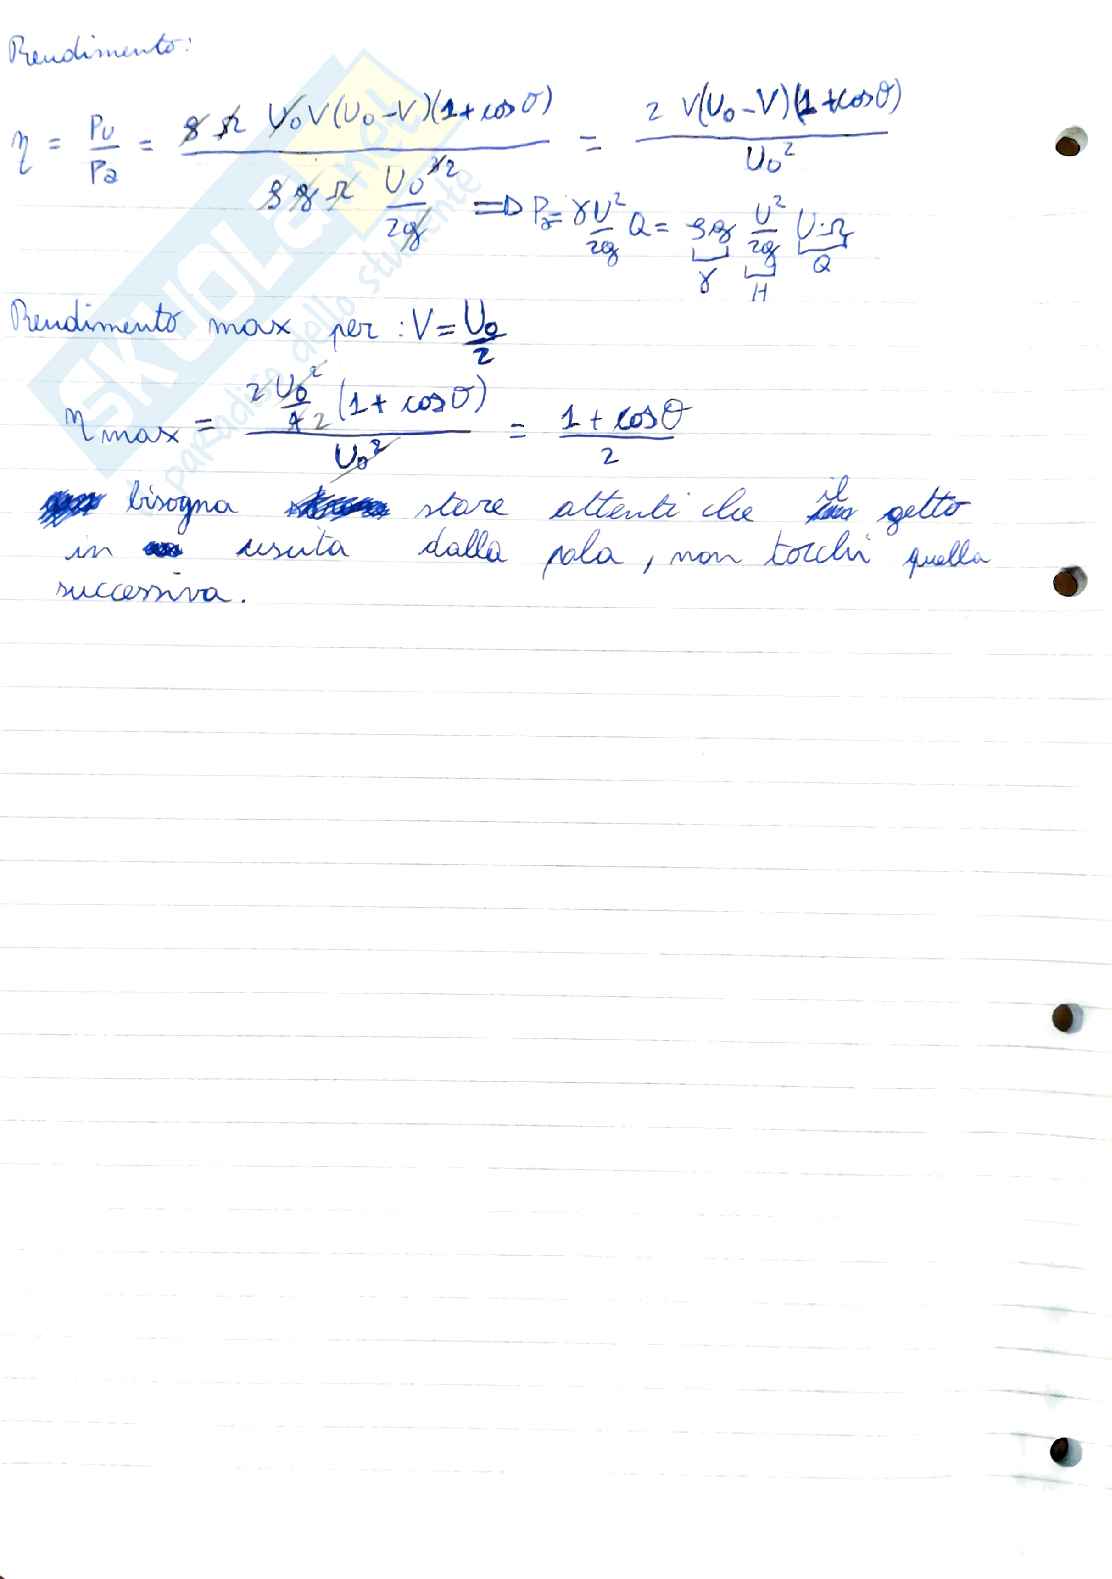 Rendimento:
η = Pu/Pa = ρ Ω U₀ V(U₀-V)(1+cosθ) / ρ g Ω U₀³/2g = 2 V(U₀-V)(1+cosθ) / U₀²
=> Pa = γ U²/2g Q = ρg U²/2g U·Ω
γ H Q
Rendimento max per: V = U₀/2
ηmax = 2 U₀²/4 2 (1+cosθ) / U₀² = 1+cosθ / 2
bisogna stare attenti che il getto
in uscita dalla pala, non tocchi quella
successiva.
SKUOLA.net
paradiso dello studente